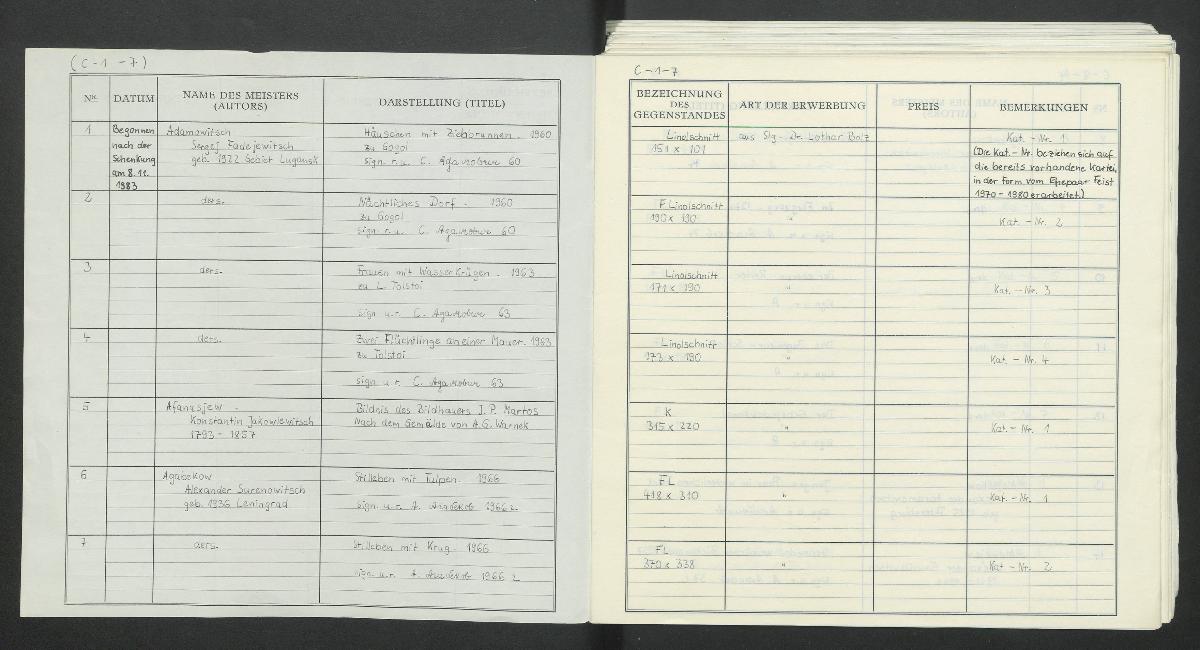 (C-1-7)
Nr. DATUM NAME DES MEISTERS (AUTORS) DARSTELLUNG (TITEL)
1 Begonnen nach der Schenkung am 8.11. 1983
Adamowitsch
Sergej Fadejewitsch
geb. 1922 Gebiet Lugansk
Häuschen mit Ziehbrunnen. 1960
zu Gogol
sign. r. u. С. Адамович 60
2 ders.
Nächtliches Dorf. 1960
zu Gogol
sign r. u. С. Адамович 60
3 ders.
Frauen mit Wasserkrügen. 1963
zu L. Tolstoi
sign u. r. С. Адамович 63
4 ders.
Zwei Flüchtlinge an einer Mauer. 1963
zu Tolstoi
sign u. r. С. Адамович 63
5 Afanasjew
Konstantin Jakowlewitsch
1793 - 1857
Bildnis des Bildhauers I. P. Martos
Nach dem Gemälde von A. G. Warnek
6 Agabekow
Alexander Surenowitsch
geb. 1936 Leningrad
Stilleben mit Tulpen. 1966
sign. u. r. А. Агабеков 1966 г
7 ders.
Stilleben mit Krug. 1966
sign u. r. А. Агабеков 1966 г
C-1-7
BEZEICHNUNG DES GEGENSTANDES ART DER ERWERBUNG PREIS BEMERKUNGEN
Linolschnitt
151 x 101
aus Slg. Dr. Lothar Bolz
Kat. - Nr. 1
(Die Kat. - Nr. beziehen sich auf
die bereits vorhandene Kartei,
in der Form vom Ehepaar Feist
1970 - 1980 erarbeitet.)
F Linolschnitt
190 x 190
"
Kat. - Nr. 2
Linolschnitt
171 x 190
"
Kat. - Nr. 3
Linolschnitt
173 x 190
"
Kat. - Nr. 4
K
315 x 220
"
Kat. - Nr. 1
FL
418 x 310
"
Kat. - Nr. 1
FL
370 x 338
"
Kat - Nr. 2